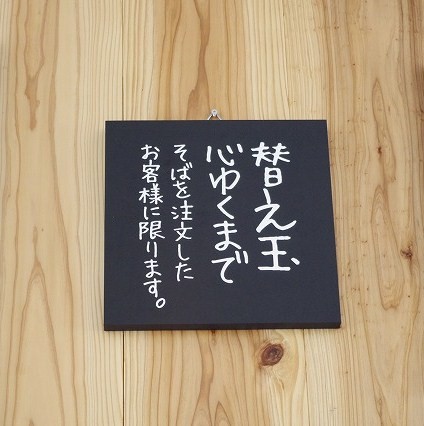 替え玉
心ゆくまで
そばを注文した
お客様に限ります。